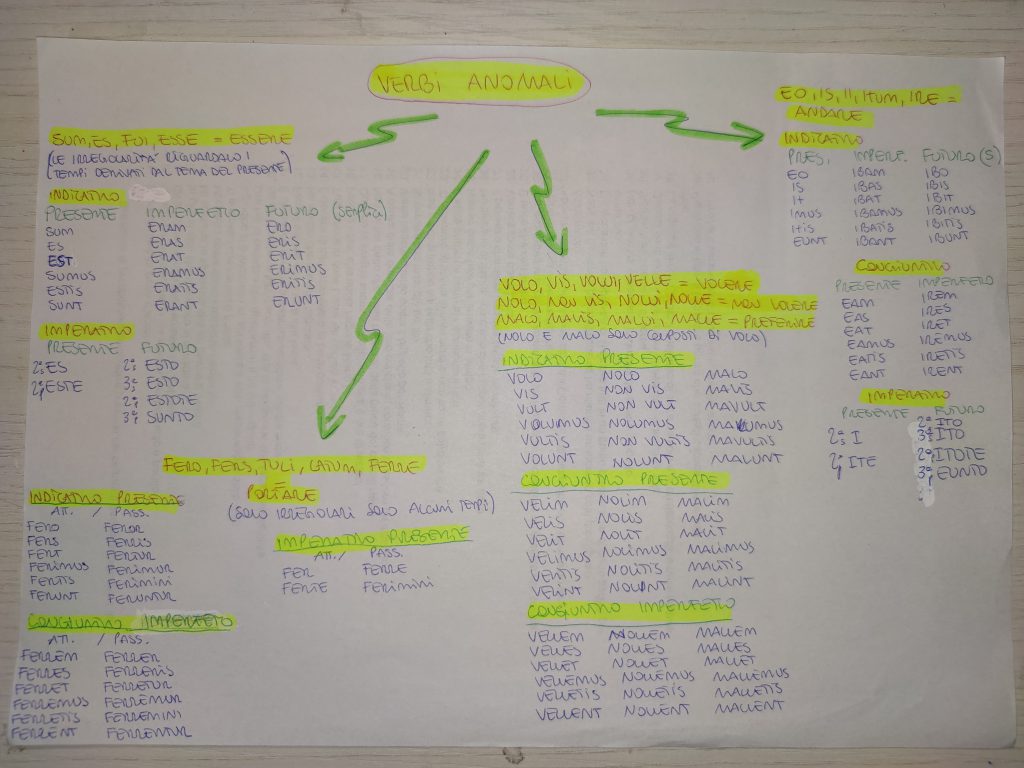 VERBI ANOMALI
SUM, ES, FUI, ESSE = ESSERE
(LE IRREGOLARITÁ RIGUARDANO I
TEMPI DERIVATI DAL TEMA DEL PRESENTE)
INDICATIVO
PRESENTE IMPERFETTO FUTURO (SEMPLICE)
SUM ERAM ERO
ES ERAS ERIS
EST ERAT ERIT
SUMUS ERAMUS ERIMUS
ESTIS ERATIS ERITIS
SUNT ERANT ERUNT
IMPERATIVO
PRESENTE FUTURO
2ªs ES 2ªs ESTO
2ªp ESTE 3ªs ESTO
2ªp ESTOTE
3ªp SUNTO
FERO, FERS, TULI, LATUM, FERRE
=
PORTARE
(SOLO IRREGOLARI SOLO ALCUNI TEMPI)
INDICATIVO PRESENTE
ATT. / PASS.
FERO FEROR
FERS FERRIS
FERT FERTUR
FERIMUS FERIMUR
FERTIS FERIMINI
FERUNT FERUNTUR
IMPERATIVO PRESENTE
ATT. / PASS.
FER FERRE
FERTE FERIMINI
CONGIUNTIVO IMPERFETTO
ATT. / PASS.
FERREM FERRER
FERRES FERRERIS
FERRET FERRETUR
FERREMUS FERREMUR
FERRETIS FERREMINI
FERRENT FERRENTUR
VOLO, VIS, VOLUI, VELLE = VOLERE
NOLO, NON VIS, NOLUI, NOLLE = NON VOLERE
MALO, MAVIS, MALUI, MALLE = PREFERIRE
(NOLO E MALO SONO COMPOSTI DI VOLO)
INDICATIVO PRESENTE
VOLO NOLO MALO
VIS NON VIS MAVIS
VULT NON VULT MAVULT
VOLUMUS NOLUMUS MALUMUS
VULTIS NON VULTIS MAVULTIS
VOLUNT NOLUNT MALUNT
CONGIUNTIVO PRESENTE
VELIM NOLIM MALIM
VELIS NOLIS MALIS
VELIT NOLIT MALIT
VELIMUS NOLIMUS MALIMUS
VELITIS NOLITIS MALITIS
VELINT NOLINT MALINT
CONGIUNTIVO IMPERFETTO
VELLEM NOLLEM MALLEM
VELLES NOLLES MALLES
VELLET NOLLET MALLET
VELLEMUS NOLLEMUS MALLEMUS
VELLETIS NOLLETIS MALLETIS
VELLENT NOLLENT MALLENT
EO, IS, II, ITUM, IRE =
ANDARE
INDICATIVO
PRES. IMPERF. FUTURO (S)
EO IBAM IBO
IS IBAS IBIS
IT IBAT IBIT
IMUS IBAMUS IBIMUS
ITIS IBATIS IBITIS
EUNT IBANT IBUNT
CONGIUNTIVO
PRESENTE IMPERFETTO
EAM IREM
EAS IRES
EAT IRET
EAMUS IREMUS
EATIS IRETIS
EANT IRENT
IMPERATIVO
PRESENTE FUTURO
2ªs I 2ªs ITO
2ªp ITE 3ªs ITO
2ªp ITOTE
3ªp EUNTO